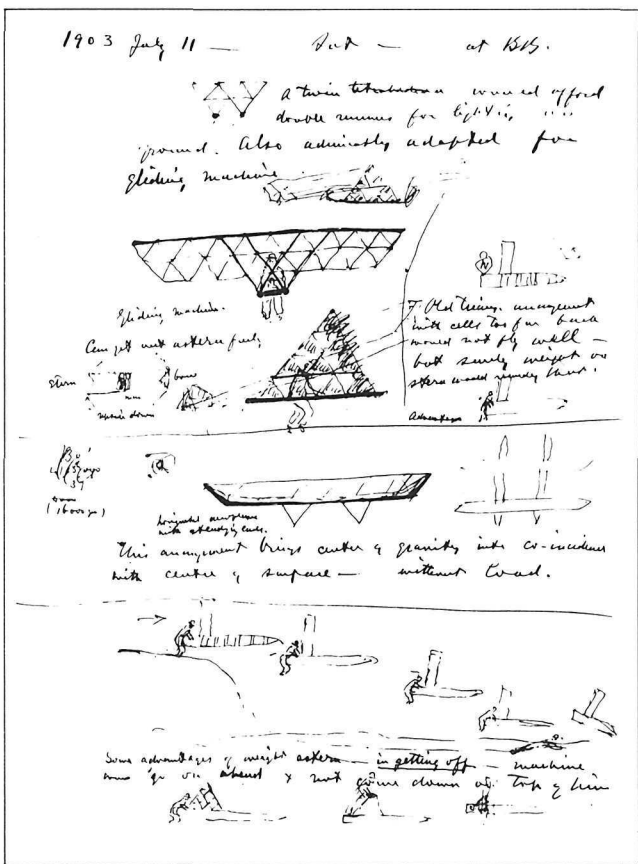 1903 July 11 — Sat — at BB.
A twin tetrahedron would afford
double runners for lighting
ground. Also admirably adapted for
gliding machine
Gliding machine.
Can get out astern
stern
bow
? Old arrangement
with cells too far back
would not fly well —
but surely weight on
stern would remedy that.
Horizontal aeroplane
with steadying ends.
This arrangement brings center of gravity into co-incidence
with center of surface — without load.
Some advantages of weight astern — in getting off — machine
go on ahead & not come down on top of him